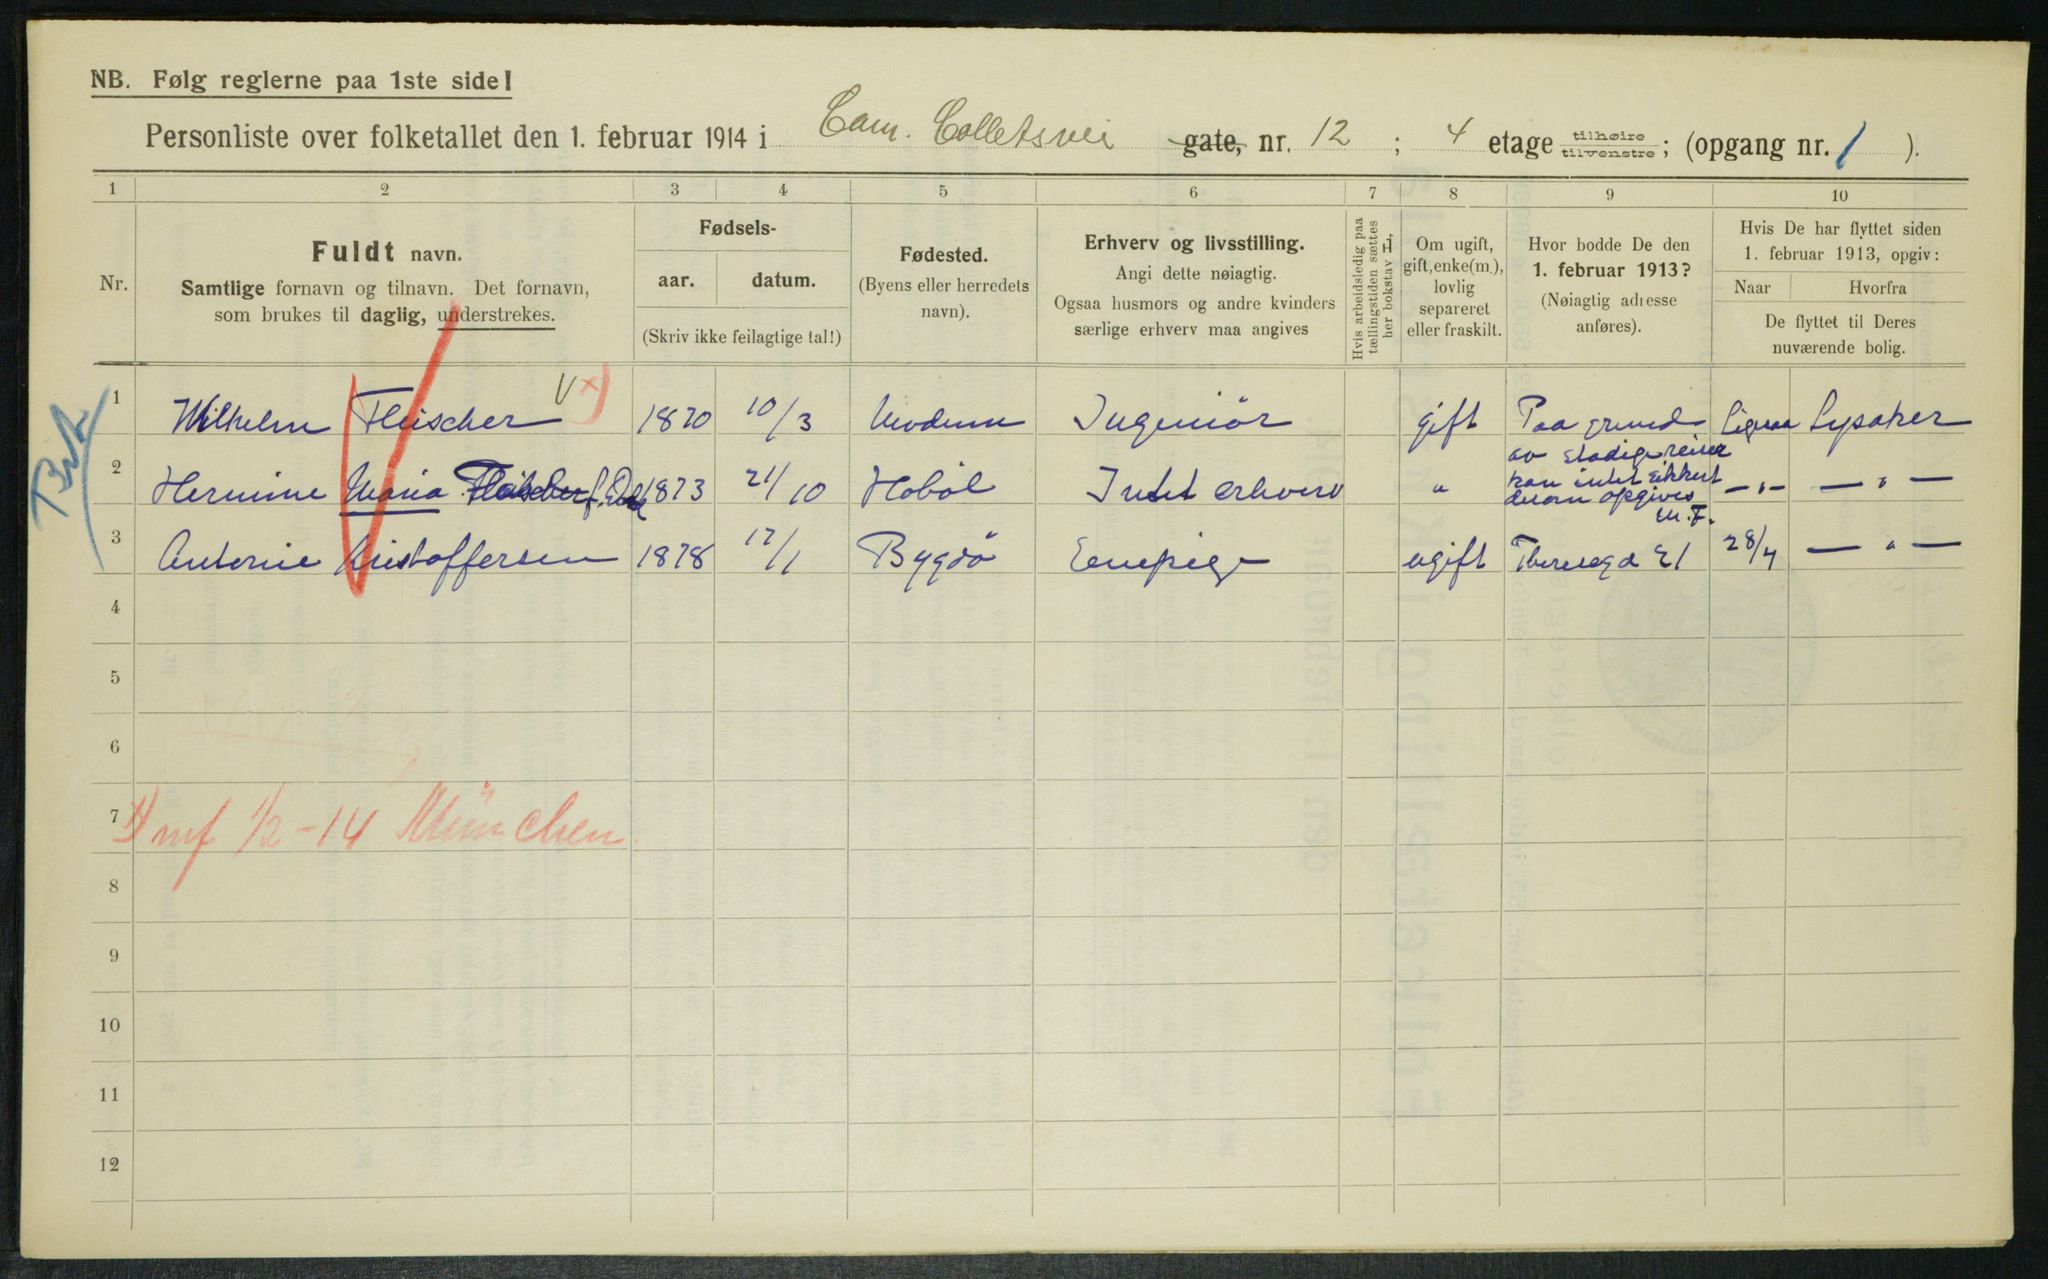 NB. Følg reglerne paa 1ste side!
Personliste over folketallet den 1. februar 1914 i Cam. Colletsvei gate, nr. 12 ; 4 etage tilhøire tilvenstre ; (opgang nr. 1 ).
1 2 3 4 5 6 7 8 9 10
Nr.
Fuldt navn.
Samtlige fornavn og tilnavn. Det fornavn,
som brukes til daglig, understrekes.
Fødsels-
aar. datum.
(Skriv ikke feilagtige tal!)
Fødested.
(Byens eller herredets
navn).
Erhverv og livsstilling.
Angi dette nøiagtig.
Ogsaa husmors og andre kvinders
særlige erhverv maa angives
Hvis arbeidsledig paa
tællingstiden sættes
her bokstav L,
Om ugift,
gift, enke(m.),
lovlig
separeret
eller fraskilt.
Hvor bodde De den
1. februar 1913?
(Nøiagtig adresse
anføres).
Hvis De har flyttet siden
1. februar 1913, opgiv:
Naar Hvorfra
De flyttet til Deres
nuværende bolig.
1 Wilhelm Fleischer 1870 10/3 Modum Ingeniör gift Paa grund Lysaker
av stadige reiser
2 Hermine Maria Fleischer f. 1873 21/10 Hobøl Intet erhverv " kan intet sikkert — " — — " —
derom opgives
W. F.
3 Antonie Kristoffersen 1878 17/1 Bygdö Enepige ugift Theresegd 21 28/4 — " —
4
5
6
7
mf 1/2 - 14 München
8
9
10
11
12